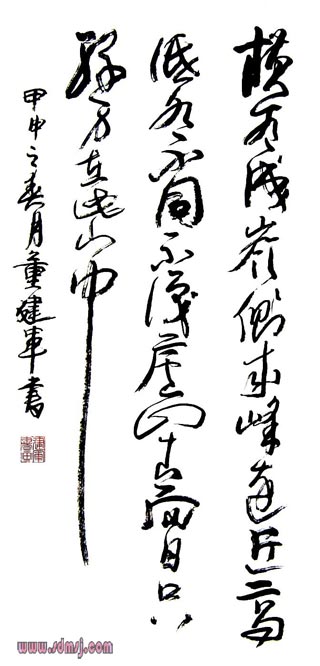 横看成岭側成峰遠近高
低各不同不識廬山真面目只
緣身在此山中
甲申之春月董建軍書
www.sdmsj.com